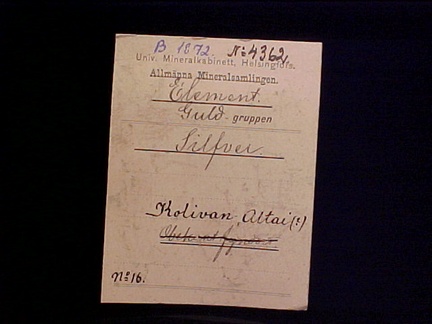 B 1872. No 4362.
Univ. Mineralkabinett, Helsingfors.
Allmänna Mineralsamlingen.
Element.
Guld-gruppen
Silfver.
Kolivan Altai (?)
No 16.